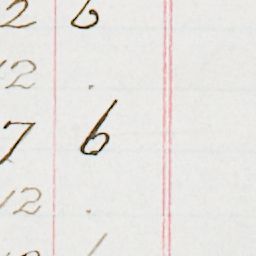 2 6
12 .
7 6
12 .